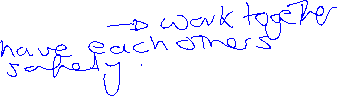 → work together
have each others
safety.